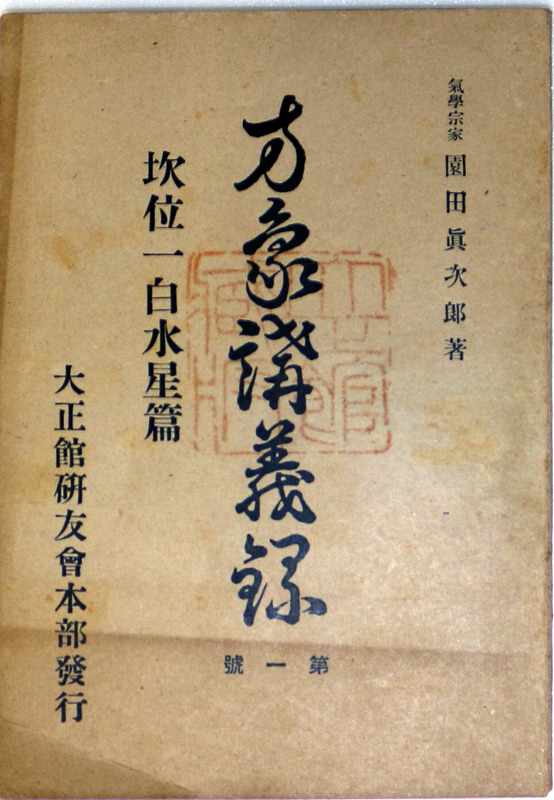 氣學宗家 園田眞次郎著
方象講義録
第一號
坎位一白水星篇
大正館研友會本部發行